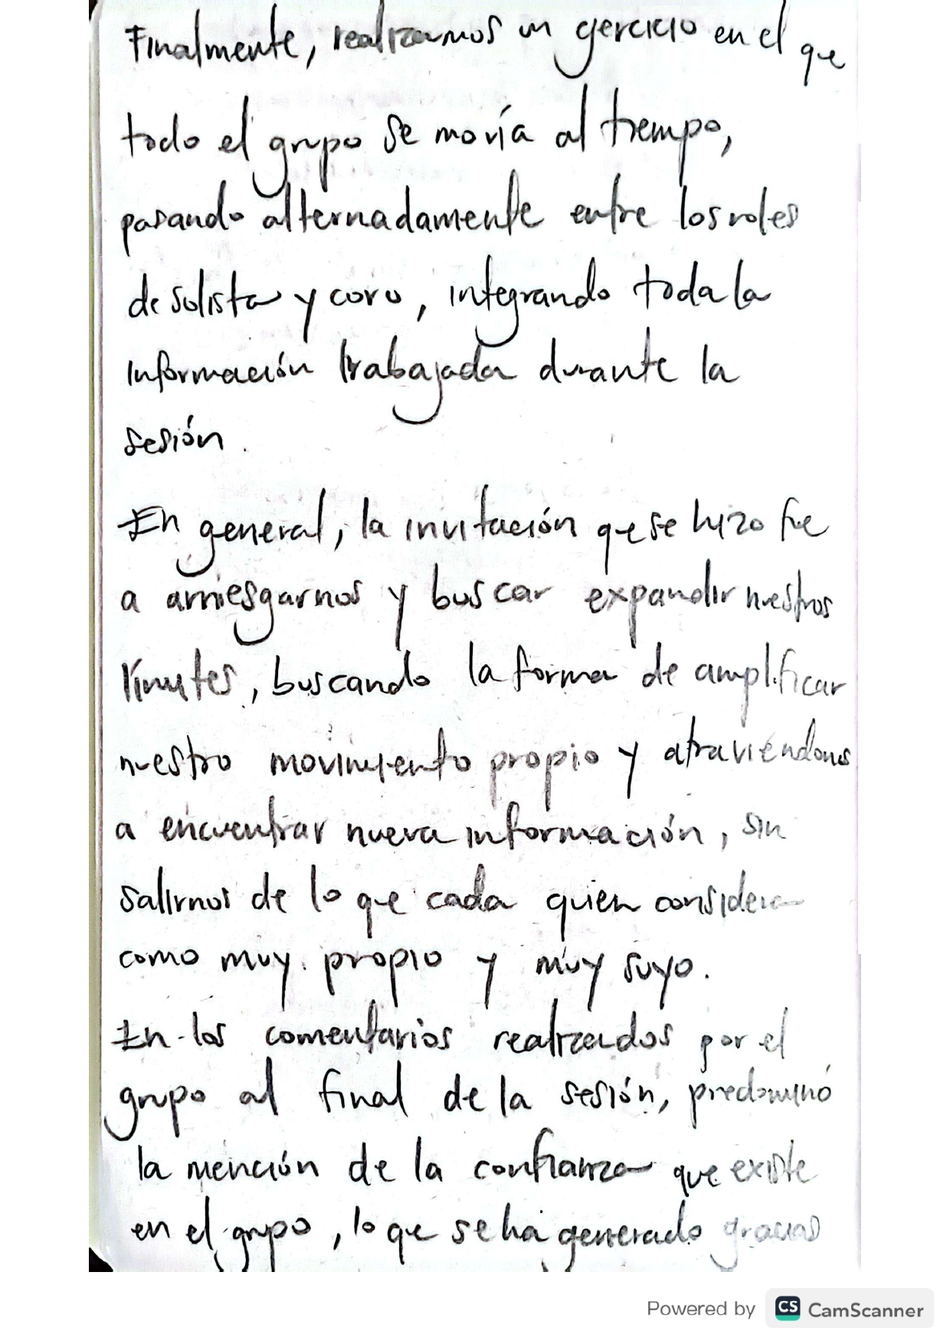 Finalmente, realizamos un ejercicio en el que
todo el grupo se movía al tiempo,
pasando alternadamente entre los roles
de solista y coro, integrando toda la
información trabajada durante la
sesión.
En general, la invitación que se hizo fue
a arriesgarnos y buscar expandir nuestros
límites, buscando la forma de amplificar
nuestro movimiento propio y atraviéndonos
a encuentrar nueva información, sin
salirnos de lo que cada quien considera
como muy propio y muy suyo.
En los comentarios realizados por el
grupo al final de la sesión, predominó
la mención de la confianza que existe
en el grupo, lo que se ha generado gracias
Powered by CS CamScanner